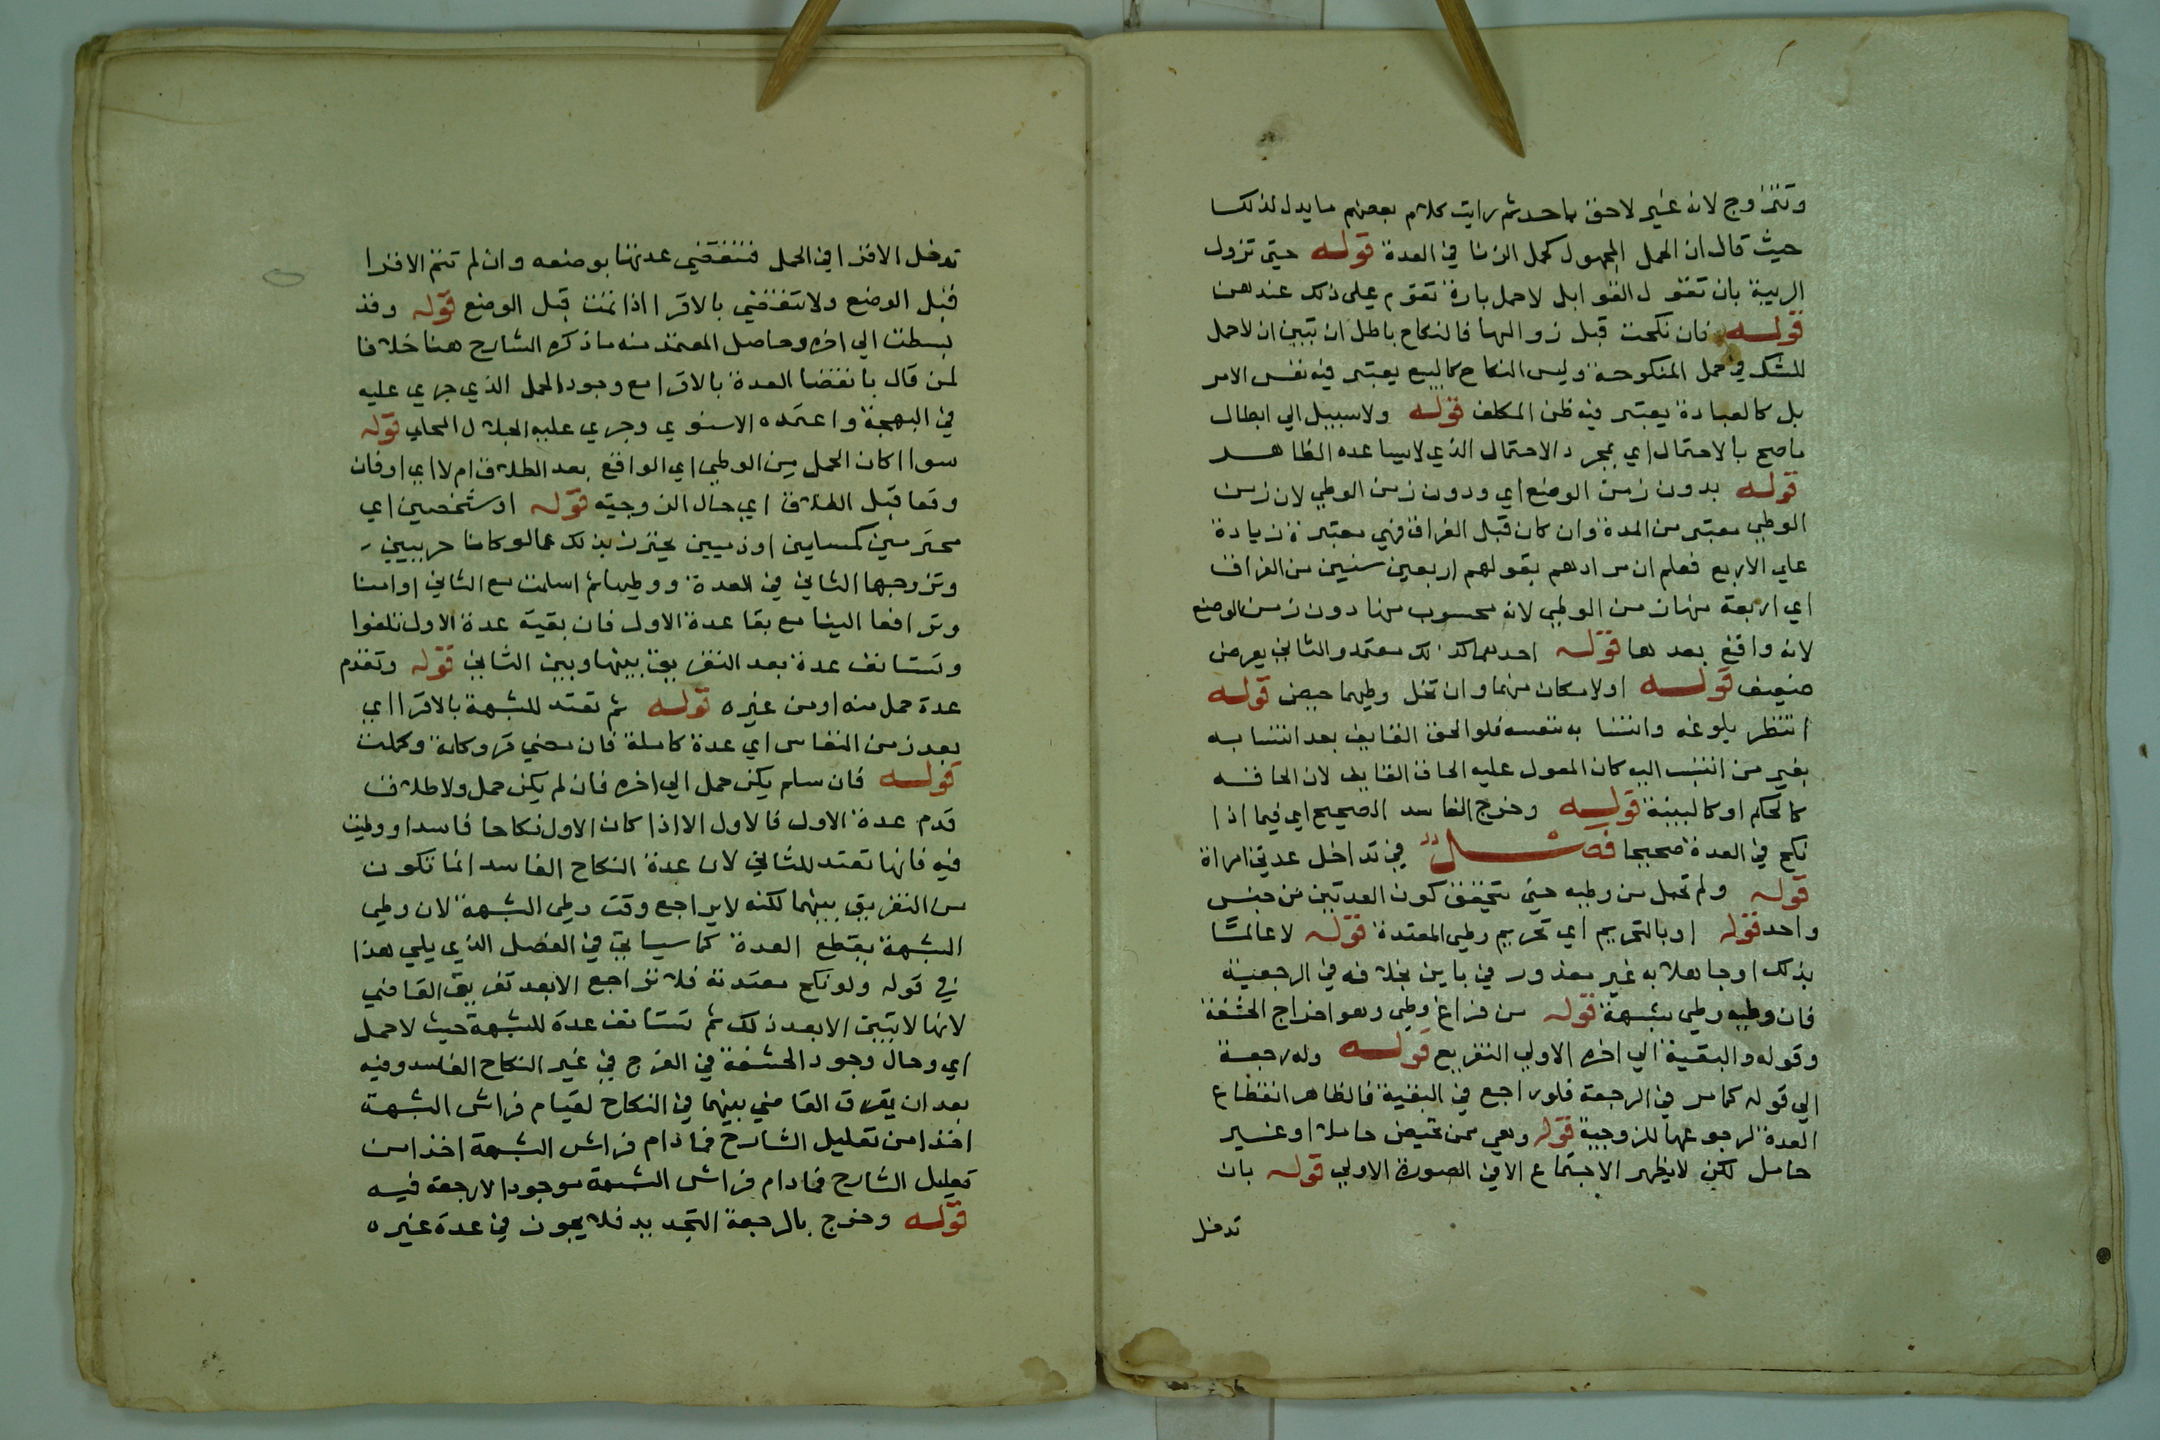 وتتزوج لانه غير لاحق باحد ثم رايت كلام بعضهم ما يدل لذلك
حيث قال ان الحمل المجهول كحمل الزنا في العدة قوله حتي تزول
الريبة بان تقول القوابل لاحمل بارة تقوم علي ذلك عندهن
قوله فان نكحت قبل زوالها فالنكاح باطل ان تبين ان لاحمل
للشك في حمل المنكوحة وليس النكاح كالبيع يعتبر فيه نفس الامر
بل كالعبادة يعتبر فيه ظن المكلف قوله ولا سبيل الي ابطال
ماصح بالاحتمال اي بمجرد الاحتمال الذي لا يساعده الظاهر
قوله بدون زمن الوضع اي ودون زمن الوطي لان زمن
الوطي معتبر من المدة وان كان قبل الفراق فهي معتبرة زيادة
علي الاربع فعلم ان مرادهم بقولهم اربعين سنين من الفراق
اي اربعة منهان من الوطي لانه محسوب منها دون زمن الوضع
لانه واقع بعدها قوله احدهما كذلك معتمد والثاني بعرض
ضعيف قوله اولامكان منهما وان تخلل وطيهما حيض قوله
انتظر بلوغه وانتسابه بنفسه فلو الحق القايف بعد انتسابه
بغير من انتسب اليه كان المعول عليه الحاق القايف لان الحاقه
كالحكم او كالبينة قوله وخرج الفاسد الصحيح اي فيما اذا
نكح في العدة صحيحا فصل في تداخل عدتي امراة
قوله ولم تحبل من وطيه حتي يتحقق كون العدتين من جنس
واحد قوله او بالتحريم اي تحريم وطي المعتدة قوله لا عالما
بذلك او جاهلا به غير معذور في باين بخلافه في الرجعية
فان وطيه وطي شبهة قوله من فراغ وطي وهو اخراج الحشفة
وقوله والبقية الي اخره الاولي التفريع قوله وله رجعة
الي قوله كما مر في الرجعة فلو راجع في البقية فالظاهر انقطاع
العدة لرجوعها للزوجية قوله وهي ممن تحيض حاملا او غير
حامل لكن لا يظهر الاجتماع الا في الصورة الاولي قوله بان
تدخل
تدخل الاقرا في الحمل فتنقضي عدتها بوضعه وان لم تتم الاقرا
قبل الوضع ولا تنقضي بالاقرا اذا تمت قبل الوضع قوله وقد
بسطت الي اخره وحاصل المعتمد منه ما ذكره الشارح هنا خلافا
لمن قال بانقضا العدة بالاقرا مع وجود الحمل الذي جري عليه
في البهجة واعتمده الاسنوي وجري عليه الجلال المحلي قوله
سوا اكان الحمل من الوطي اي الواقع بعد الطلاق ام لا اي او فان
وقعا قبل الطلاق اي حال الزوجية قوله او شخصين اي
محترمين كمسلمين او ذميين يحترز بذلك عما لو كانا حربيين
وتزوجها الثاني في العدة ووطيها ثم اسلمت مع الثاني او امنا
وترافعا الينا مع بقا عدة الاول فان بقية عدة الاول تلغوا
وتستانف عدة بعد التفريق بينها وبين الثاني قوله وتقدم
عدة حمل منه او من غيره قوله ثم تعتد للشبهة بالاقرا اي
بعد زمن النفاس اي عدة كاملة فان مضي قروكانة وكملت
قوله فان سلم يكن حمل الي اخره فان لم يكن حمل ولا طلاق
قدم عدة الاول فالاول الا اذا كان الاول نكاحا فاسدا ووطيت
فيه فانها تعتد للثاني لان عدة النكاح الفاسد انما تكون
من التفريق بينهما لكنه لا يراجع وقت وطي الشبهة لان وطي
الشبهة يقطع العدة كما سياتي في الفصل الذي يلي هذا
في قوله ولو نكح معتدته فلا تراجع الا بعد تفريق القاضي
لانها لا تبين الا بعد ذلك ثم تستانف عدة للشبهة حيث لاحمل
اي وحال وجود الحشفة في الفرج في غير النكاح الفاسد وفيه
بعد ان يفرق القاضي بينهما في النكاح لقيام فراش الشبهة
اخذا من تعليل الشارح فما دام فراش الشبهة اخذا من
تعليل الشارح فما دام فراش الشبهة موجودا لا رجعة فيه
قوله وخرج بالرجعة التجديد فلا يجوز في عدة غيره